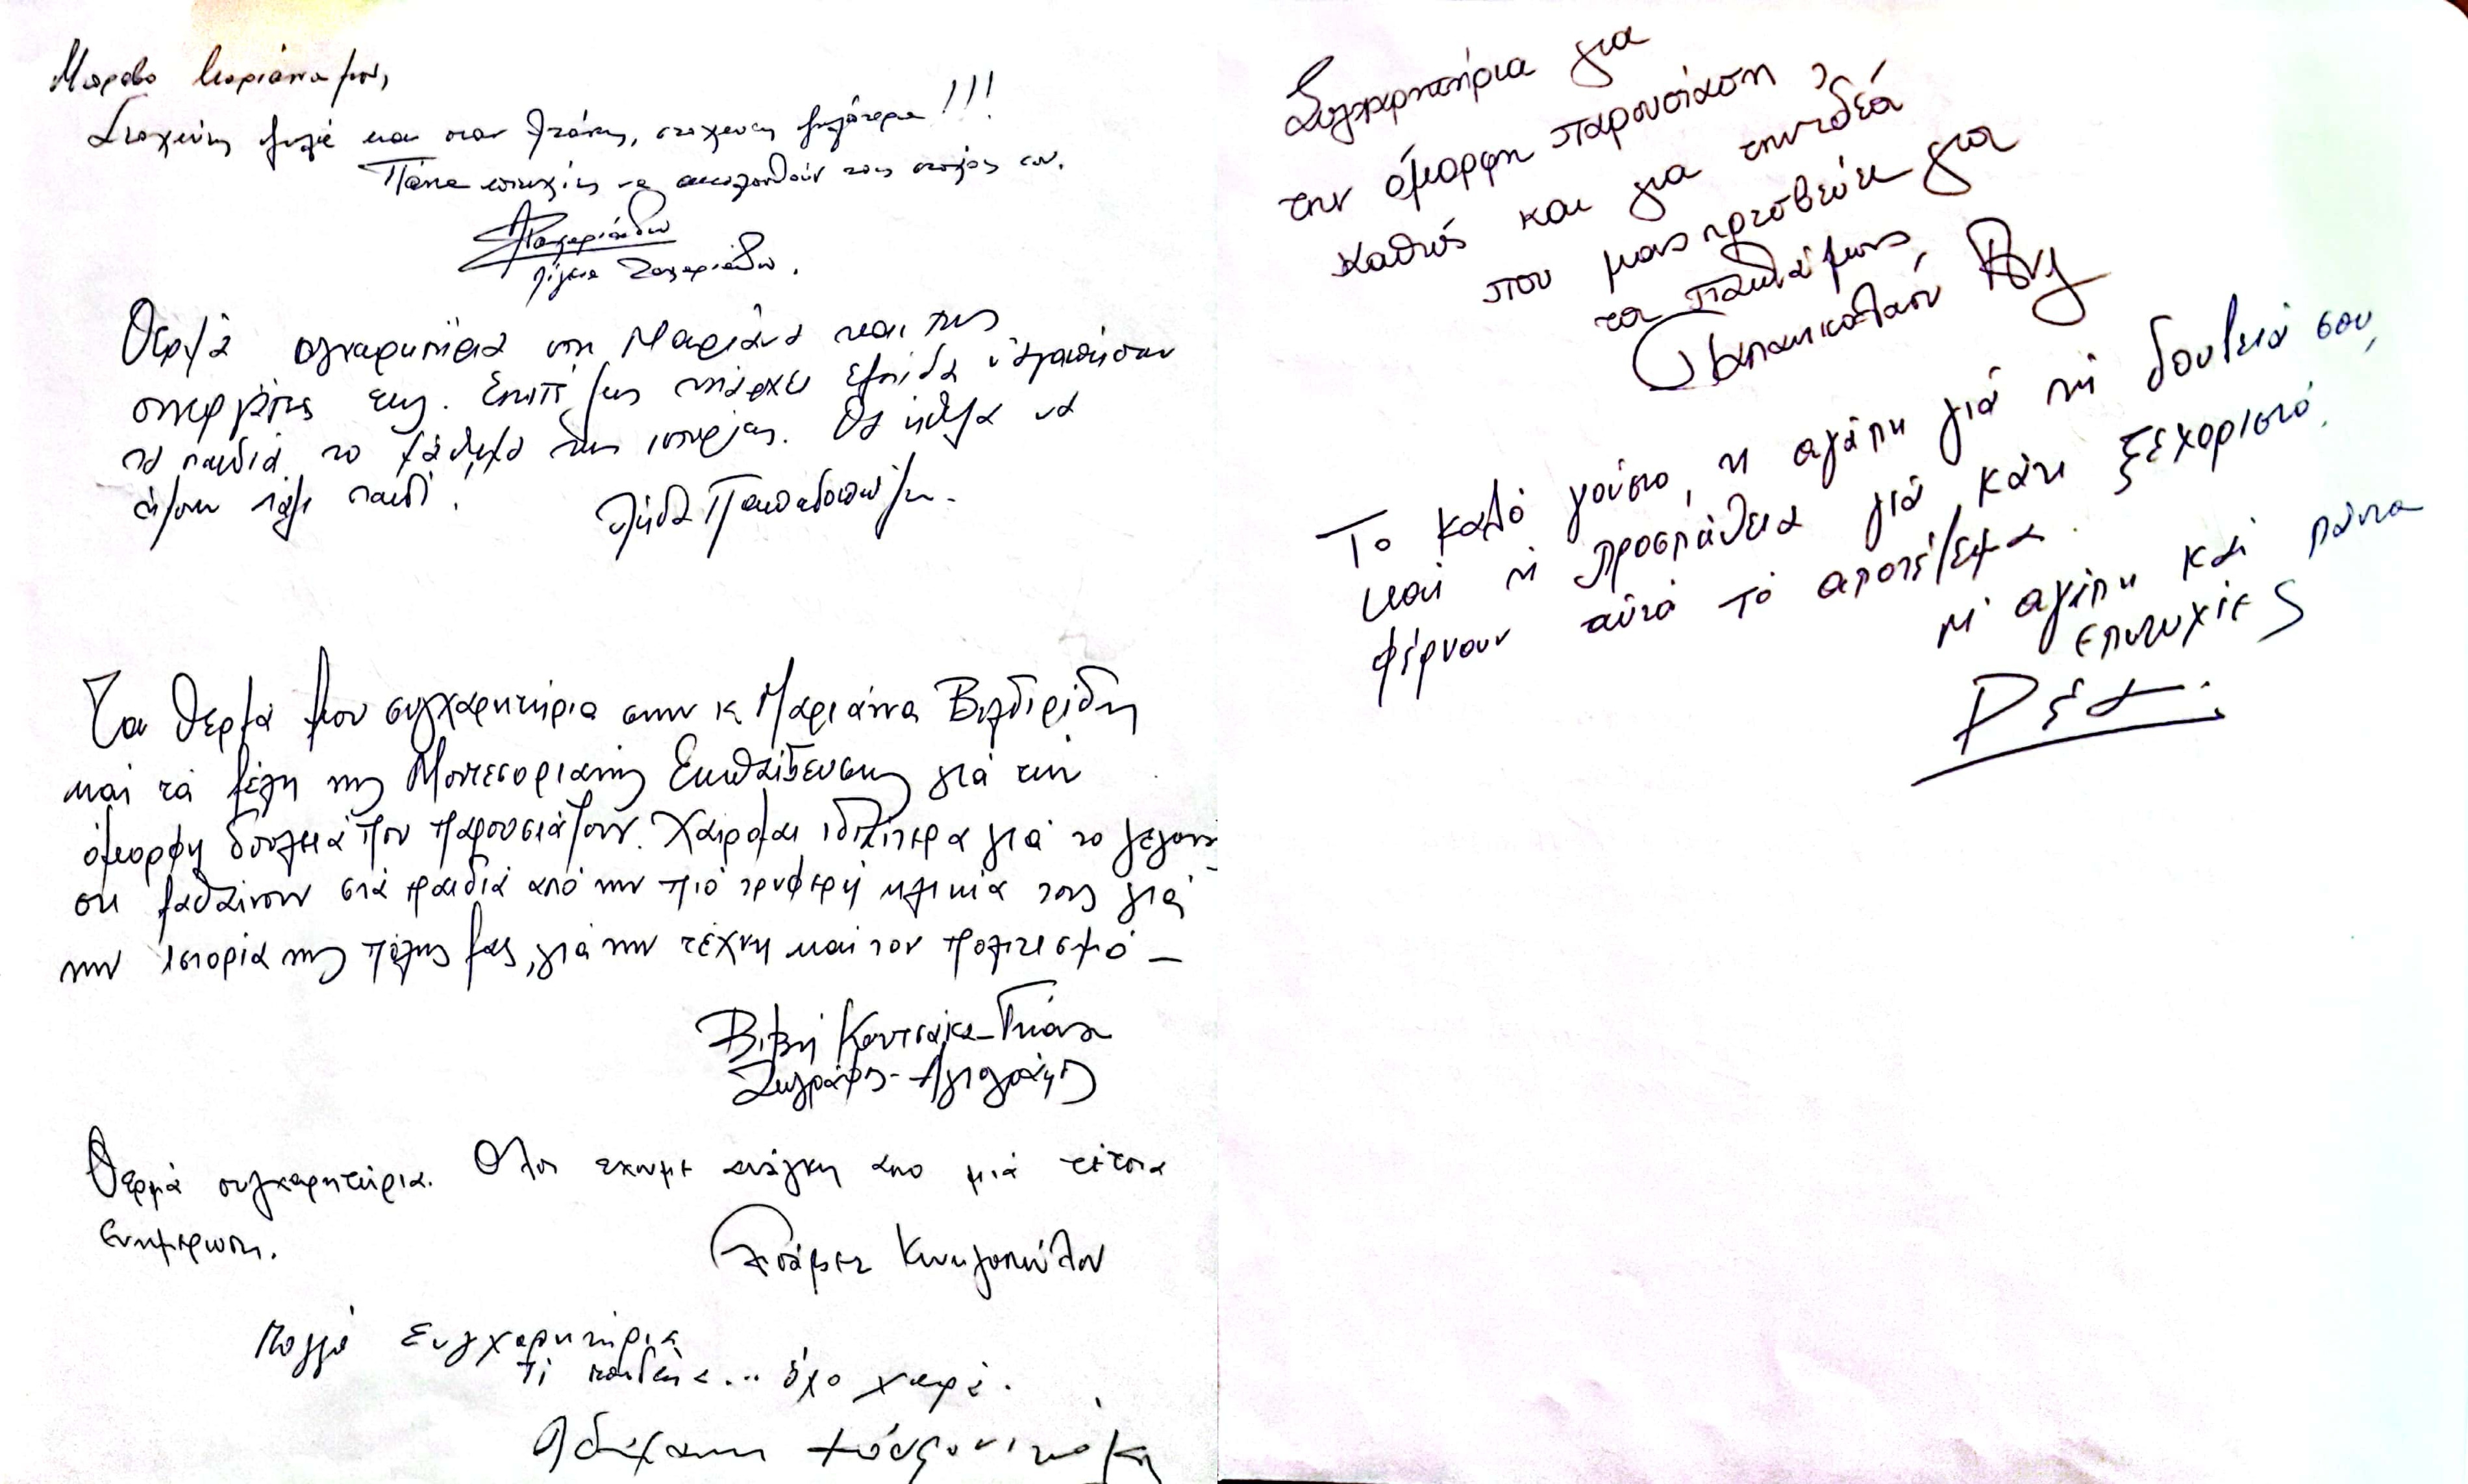 Μπράβο Μαριάννα μου,
Στοχεύεις ψηλά και όταν φτάνεις, στοχεύεις ψηλότερα!!!
Πάντα επιτυχίες να ακολουθούν τους στόχους σου.
Ζαχαριάδου
Θερμά συγχαρητήρια στη Μαριάννα και τις
συνεργάτες της. Επιτέλους υπάρχει ελπίδα ν' αγαπήσουν
τα παιδιά το μάθημα της ιστορίας. Θα ήθελα να
ήμουν πάλι παιδί!
Λήδα Παπαδοπούλου.
Τα θερμά μου συγχαρητήρια στην κ Μαριάννα Βιλδιρίδη
και τά μέλη της Μοντεσοριανής Εκπαίδευσης γιά την
όμορφη δουλειά που παρουσιάζουν. Χαίρομαι ιδιαίτερα γιά το γεγονός
ότι μαθαίνουν στά παιδιά από την πιό τρυφερή ηλικία τους γιά
την ιστορία της πόλης μας, γιά την τέχνη και τον πολιτισμό –
Βιβή Κουτσάκα-
Ζωγράφος-Αγιογράφος
Θερμά συγχαρητήρια. Όλοι έχουμε ανάγκη απο μιά τέτοια
ενημέρωση.
Κυνηγοπούλου
Πολλά Συγχαρητήρια
Τι παιδεία... όλο χαρά.
Συγχαρητήρια για
την όμορφη παρουσίαση,
καθώς και για την ιδέα
που μας πρεσβεύει για
τα παιδιά μας,
Παπανικολάου
Το καλό γούστο, η αγάπη γιά τή δουλειά σου,
και η προσπάθεια γιά κάτι ξεχωριστό,
φέρνουν αυτό τό αποτέλεσμα.
Μ' αγάπη και πάντα
επιτυχίες
Ρέα